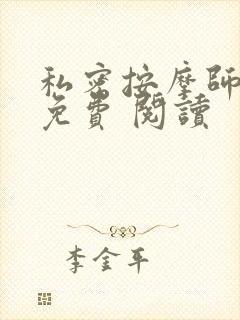 私密按摩師
免費閱讀
李金平